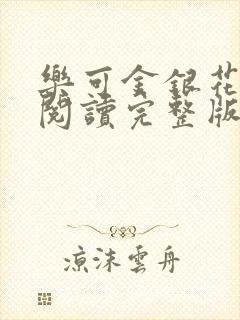 樂可金銀花
閱讀完整版
涼沫雲舟